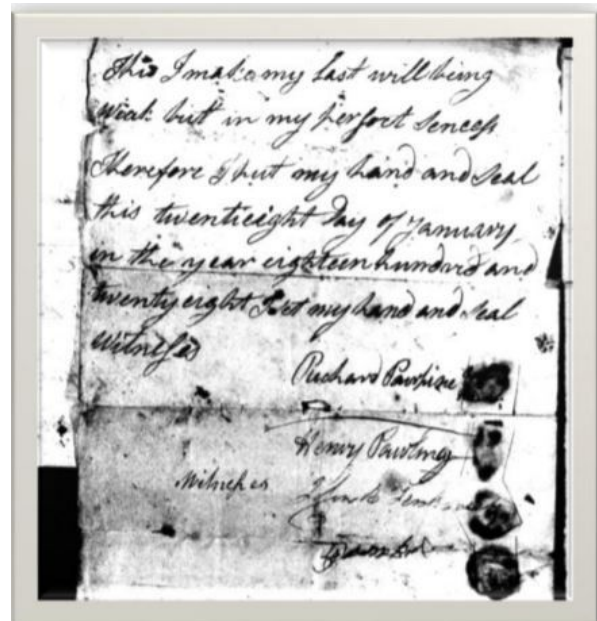 This I make my Last will being
Weak but in my perfect Sencess
Therefore I put my hand and Seal
this twentieight Day of January
in the year eighteen hundred and
twenty eight I set my hand and seal
witnesses
Richard
Henry
Witnesses